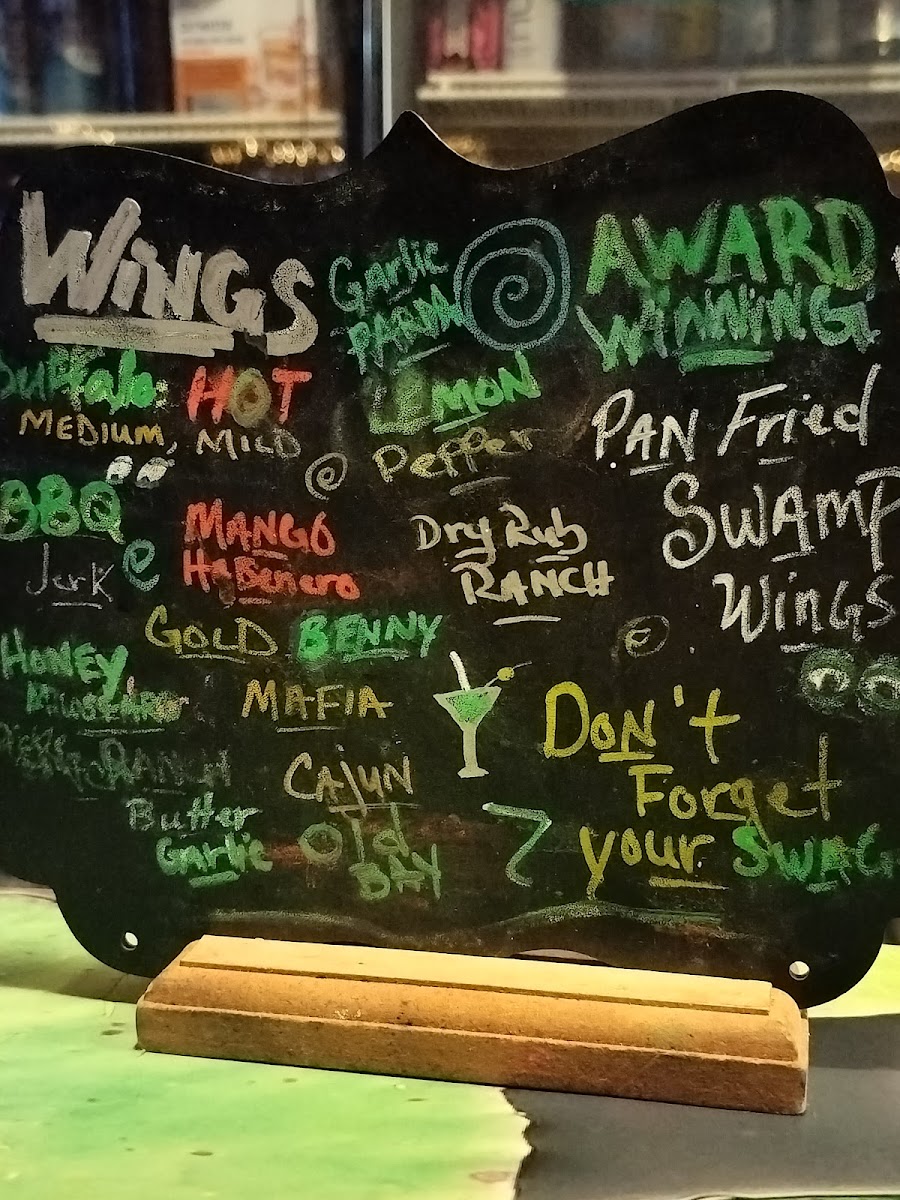 WiNGS
Buffalo: HOT
MEDIUM, MILD
BBQ
Jerk
MANGO
HaBenero
GOLD BENNY
HONEY
MAFIA
RANCH
CAJUN
Butter
Garlic
Old
BAY
Garlic
PARM
LEMON
Pepper
Dry Rub
RANCH
AWARD
WiNNiNG
PAN Fried
SWAMP
WiNGS
DON't
Forget
your SWAG